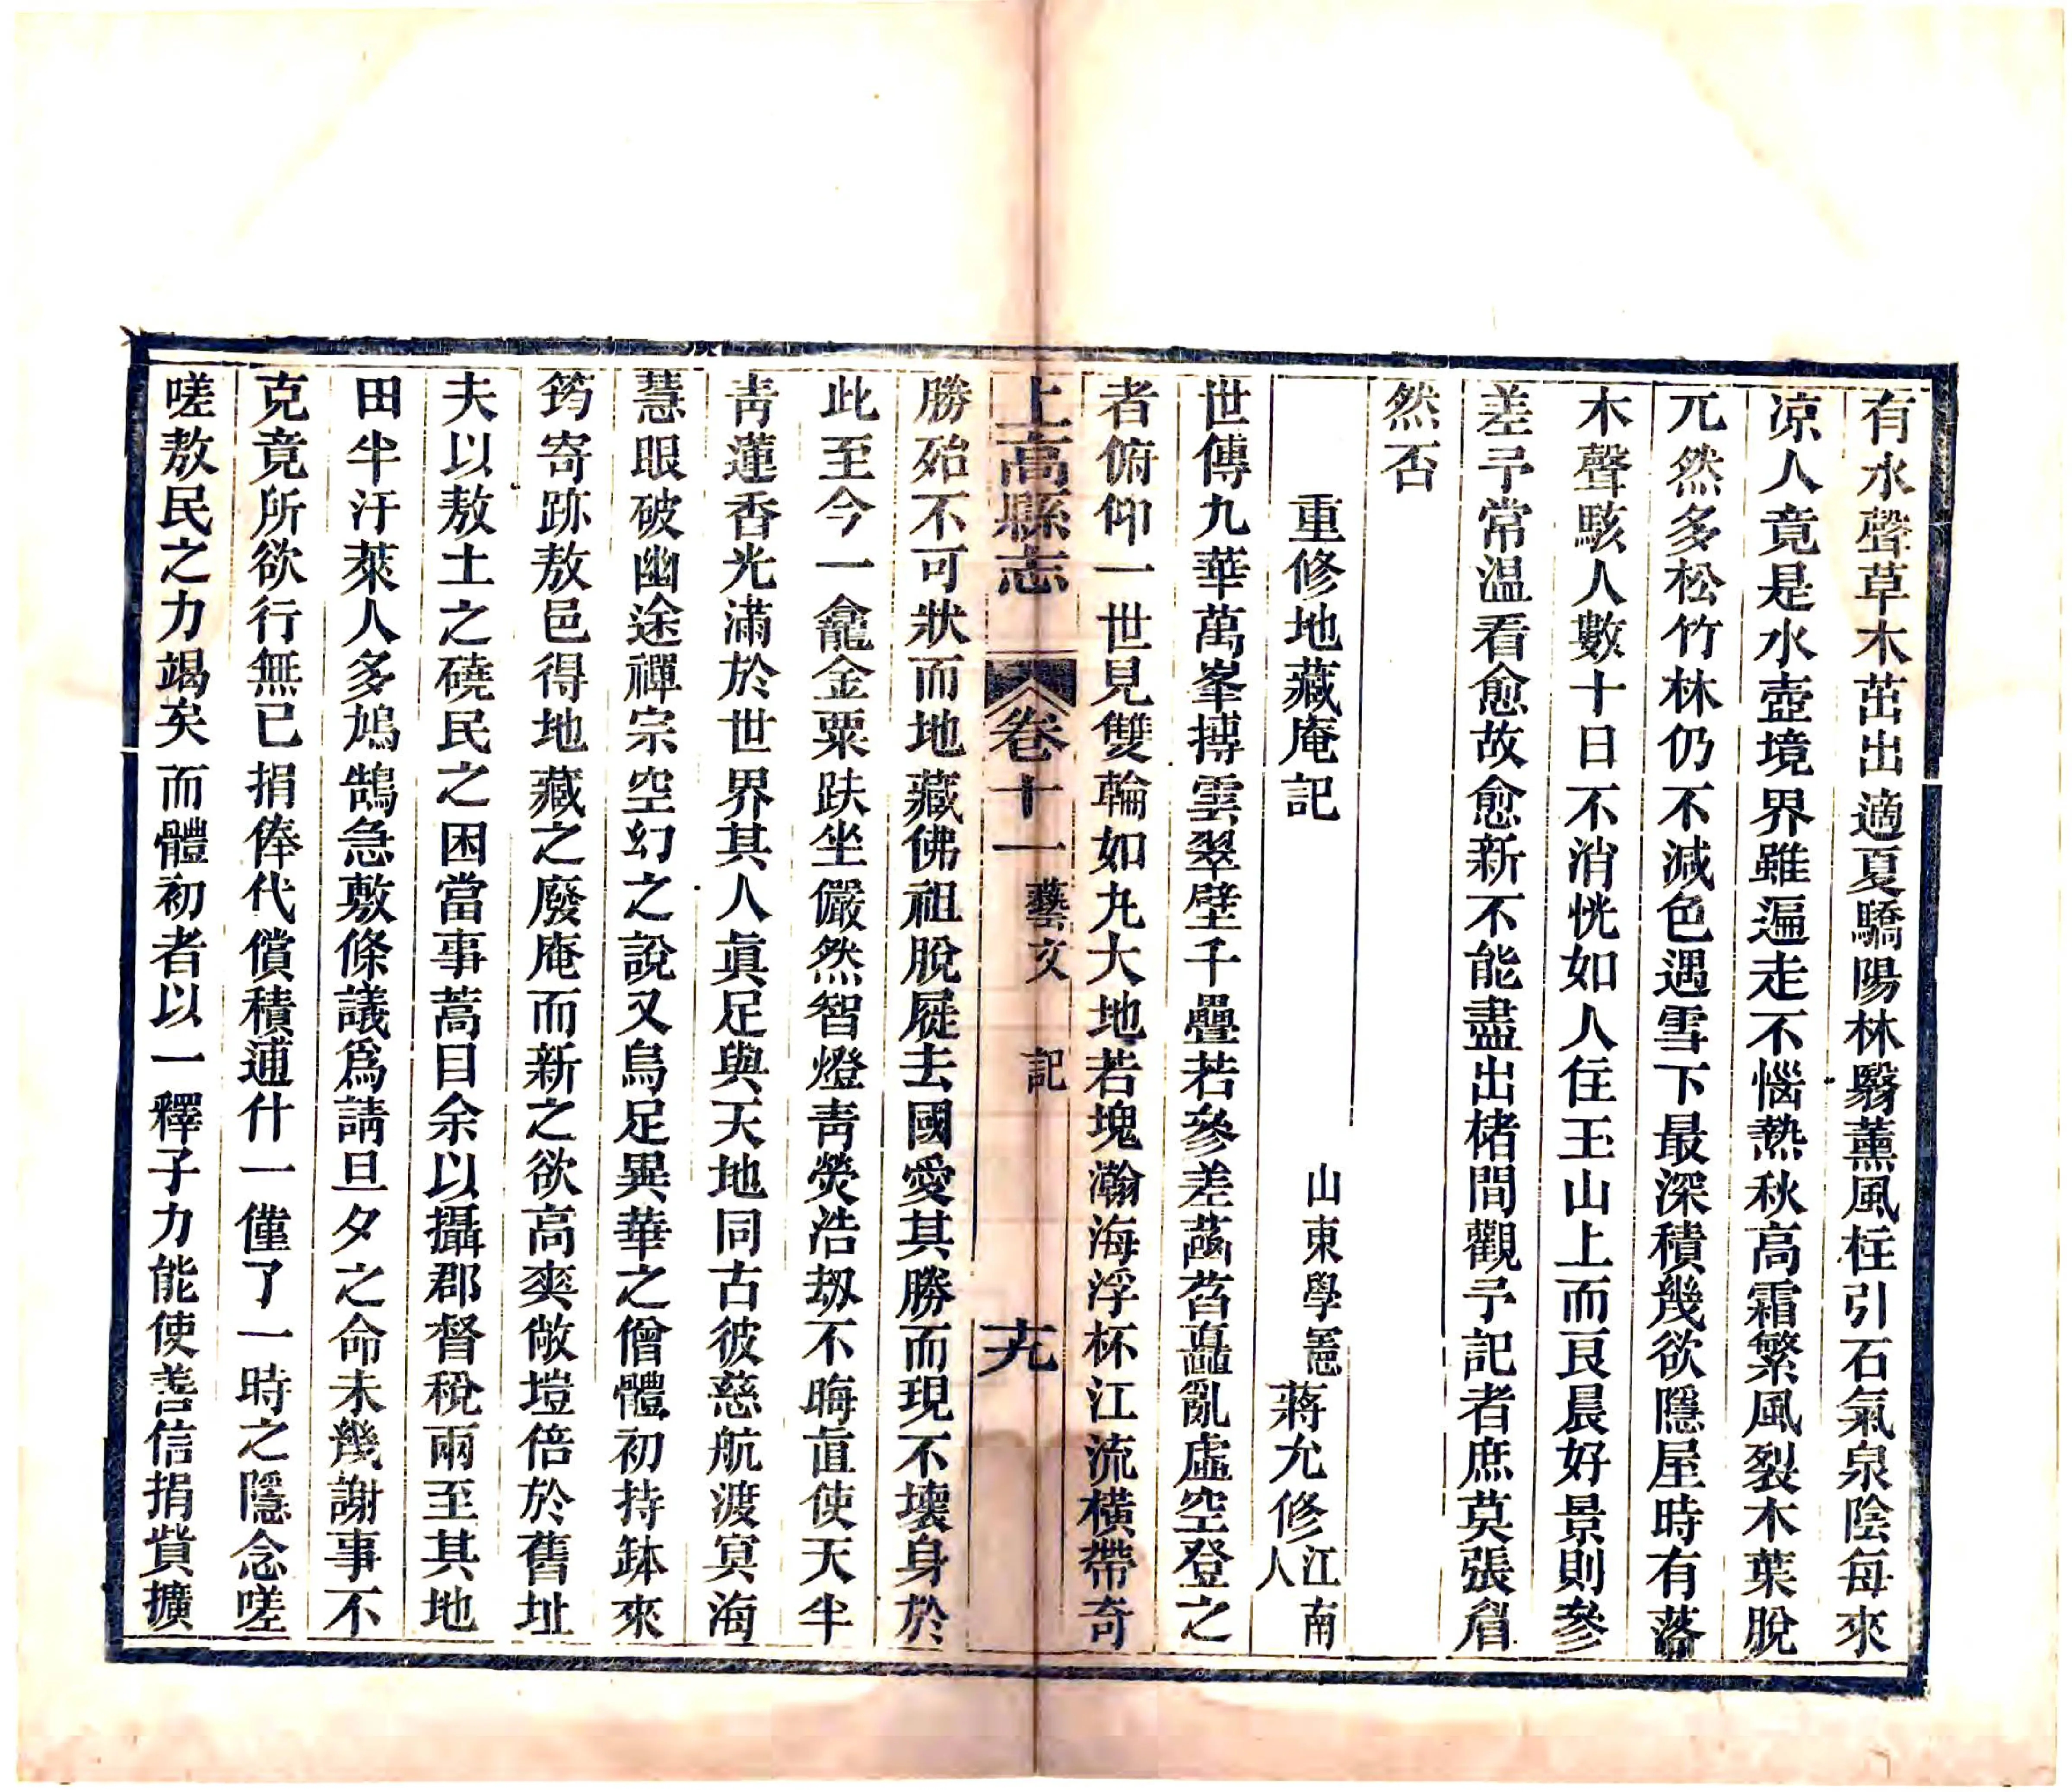 有水聲草木茁出適夏驕陽林翳薰風柱引石氣泉陰每來
凉人竟是水壺境界雖遍走不惱熱秋高霜繁風裂木葉脫
兀然多松竹林仍不減色遇雪下最深積幾欲隱屋時有落
木聲駭人數十日不消恍如人住玉山上而艮晨好景則參
差予常温看愈故愈新不能盡出楮間觀予記者庶莫張眉
然否
重修地藏庵記
山東學憲蔣允修江南人
世傳九華萬峯摶雲翠壁千疊若參差菡萏矗亂虛空登之
者俯仰一世見雙輪如九大地若塊瀚海浮杯江流橫帶奇
上高縣志 卷十一 藝文 記 十九
勝殆不可狀而地藏佛祖脫屣去國愛其勝而現不壞身於
此至今一龕金粟趺坐儼然智燈靑熒浩刼不晦直使天半
靑蓮香光滿於世界其人眞足與天地同古彼慈航渡冥海
慧眼破幽途禪宗空幻之說又烏足異華之僧體初持缽來
筠寄跡敖邑得地藏之廢庵而新之欲高爽敞塏倍於舊址
夫以敖土之磽民之困當事蒿目余以攝郡督稅兩至其地
田半汙萊人多鳩鵠急敷條議爲請旦夕之命未幾謝事不
克竟所欲行無已捐俸代償積逋什一僅了一時之隱念嗟
嗟敖民之力竭矣而體初者以一釋子力能使善信捐貲擴